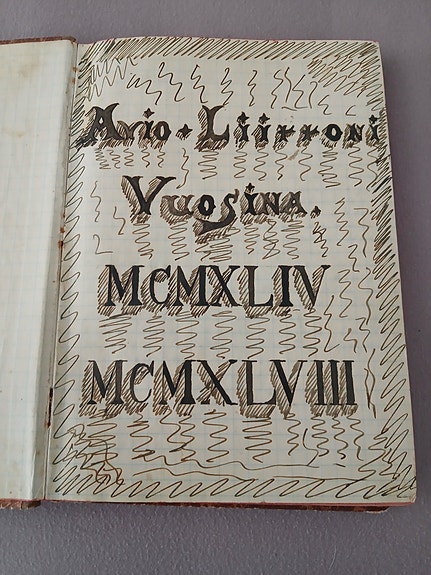 Avio-Liittoni
Vuosina.
MCMXLIV
MCMXLVIII